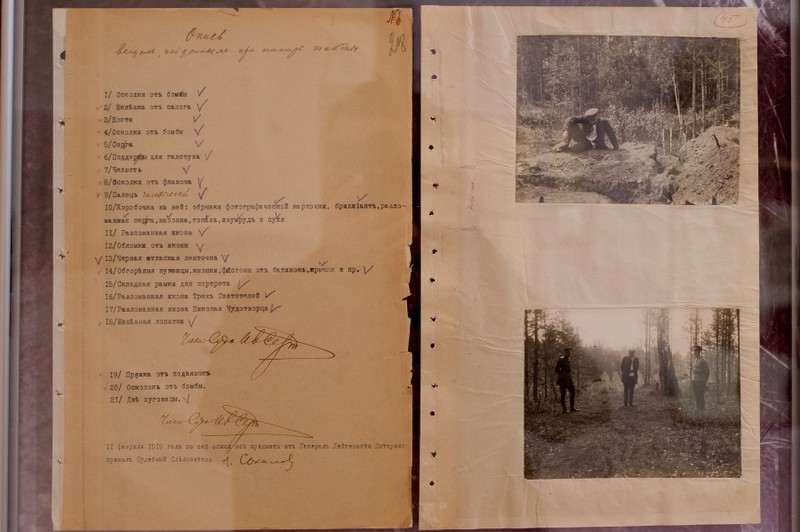 №6
28
Опись
вещамъ, найденымъ при
1/ Осколки отъ бомбы
2/ Вилѣзка отъ сапога
3/Кости
4/Осколки отъ бомбы
5/Серга
6/Поддержка для галстуха
7/Челюсть
8/Осколки отъ флакона
9/Палецъ человѣческій
10/Коробочка въ ней: обрывки фотографической карточки, брилліантъ, разло-
манная серга, заборна, топазъ, изумрудъ и пуля
11/ Разломанная икона
12/ Обломки отъ иконы
13/Черная атласная ленточка
14/Обгорѣлыя пуговицы, кнопки, фестоны отъ ботинокъ, крючки и пр.
15/Складная рамка для портрета
16/Разломанная икона Трехъ Святителей
17/Разломанная икона Николая Чудотворца
18/Желѣзная лопатка
19/ Пряжка отъ подвязокъ
20/ Осколокъ отъ бомбы.
21/ Двѣ пуговицы.
11 февраля 1919 года по сей описи всѣ предметы отъ Генералъ Лейтенанта Дитерихс
принялъ Судебный Слѣдователь Н. Соколов